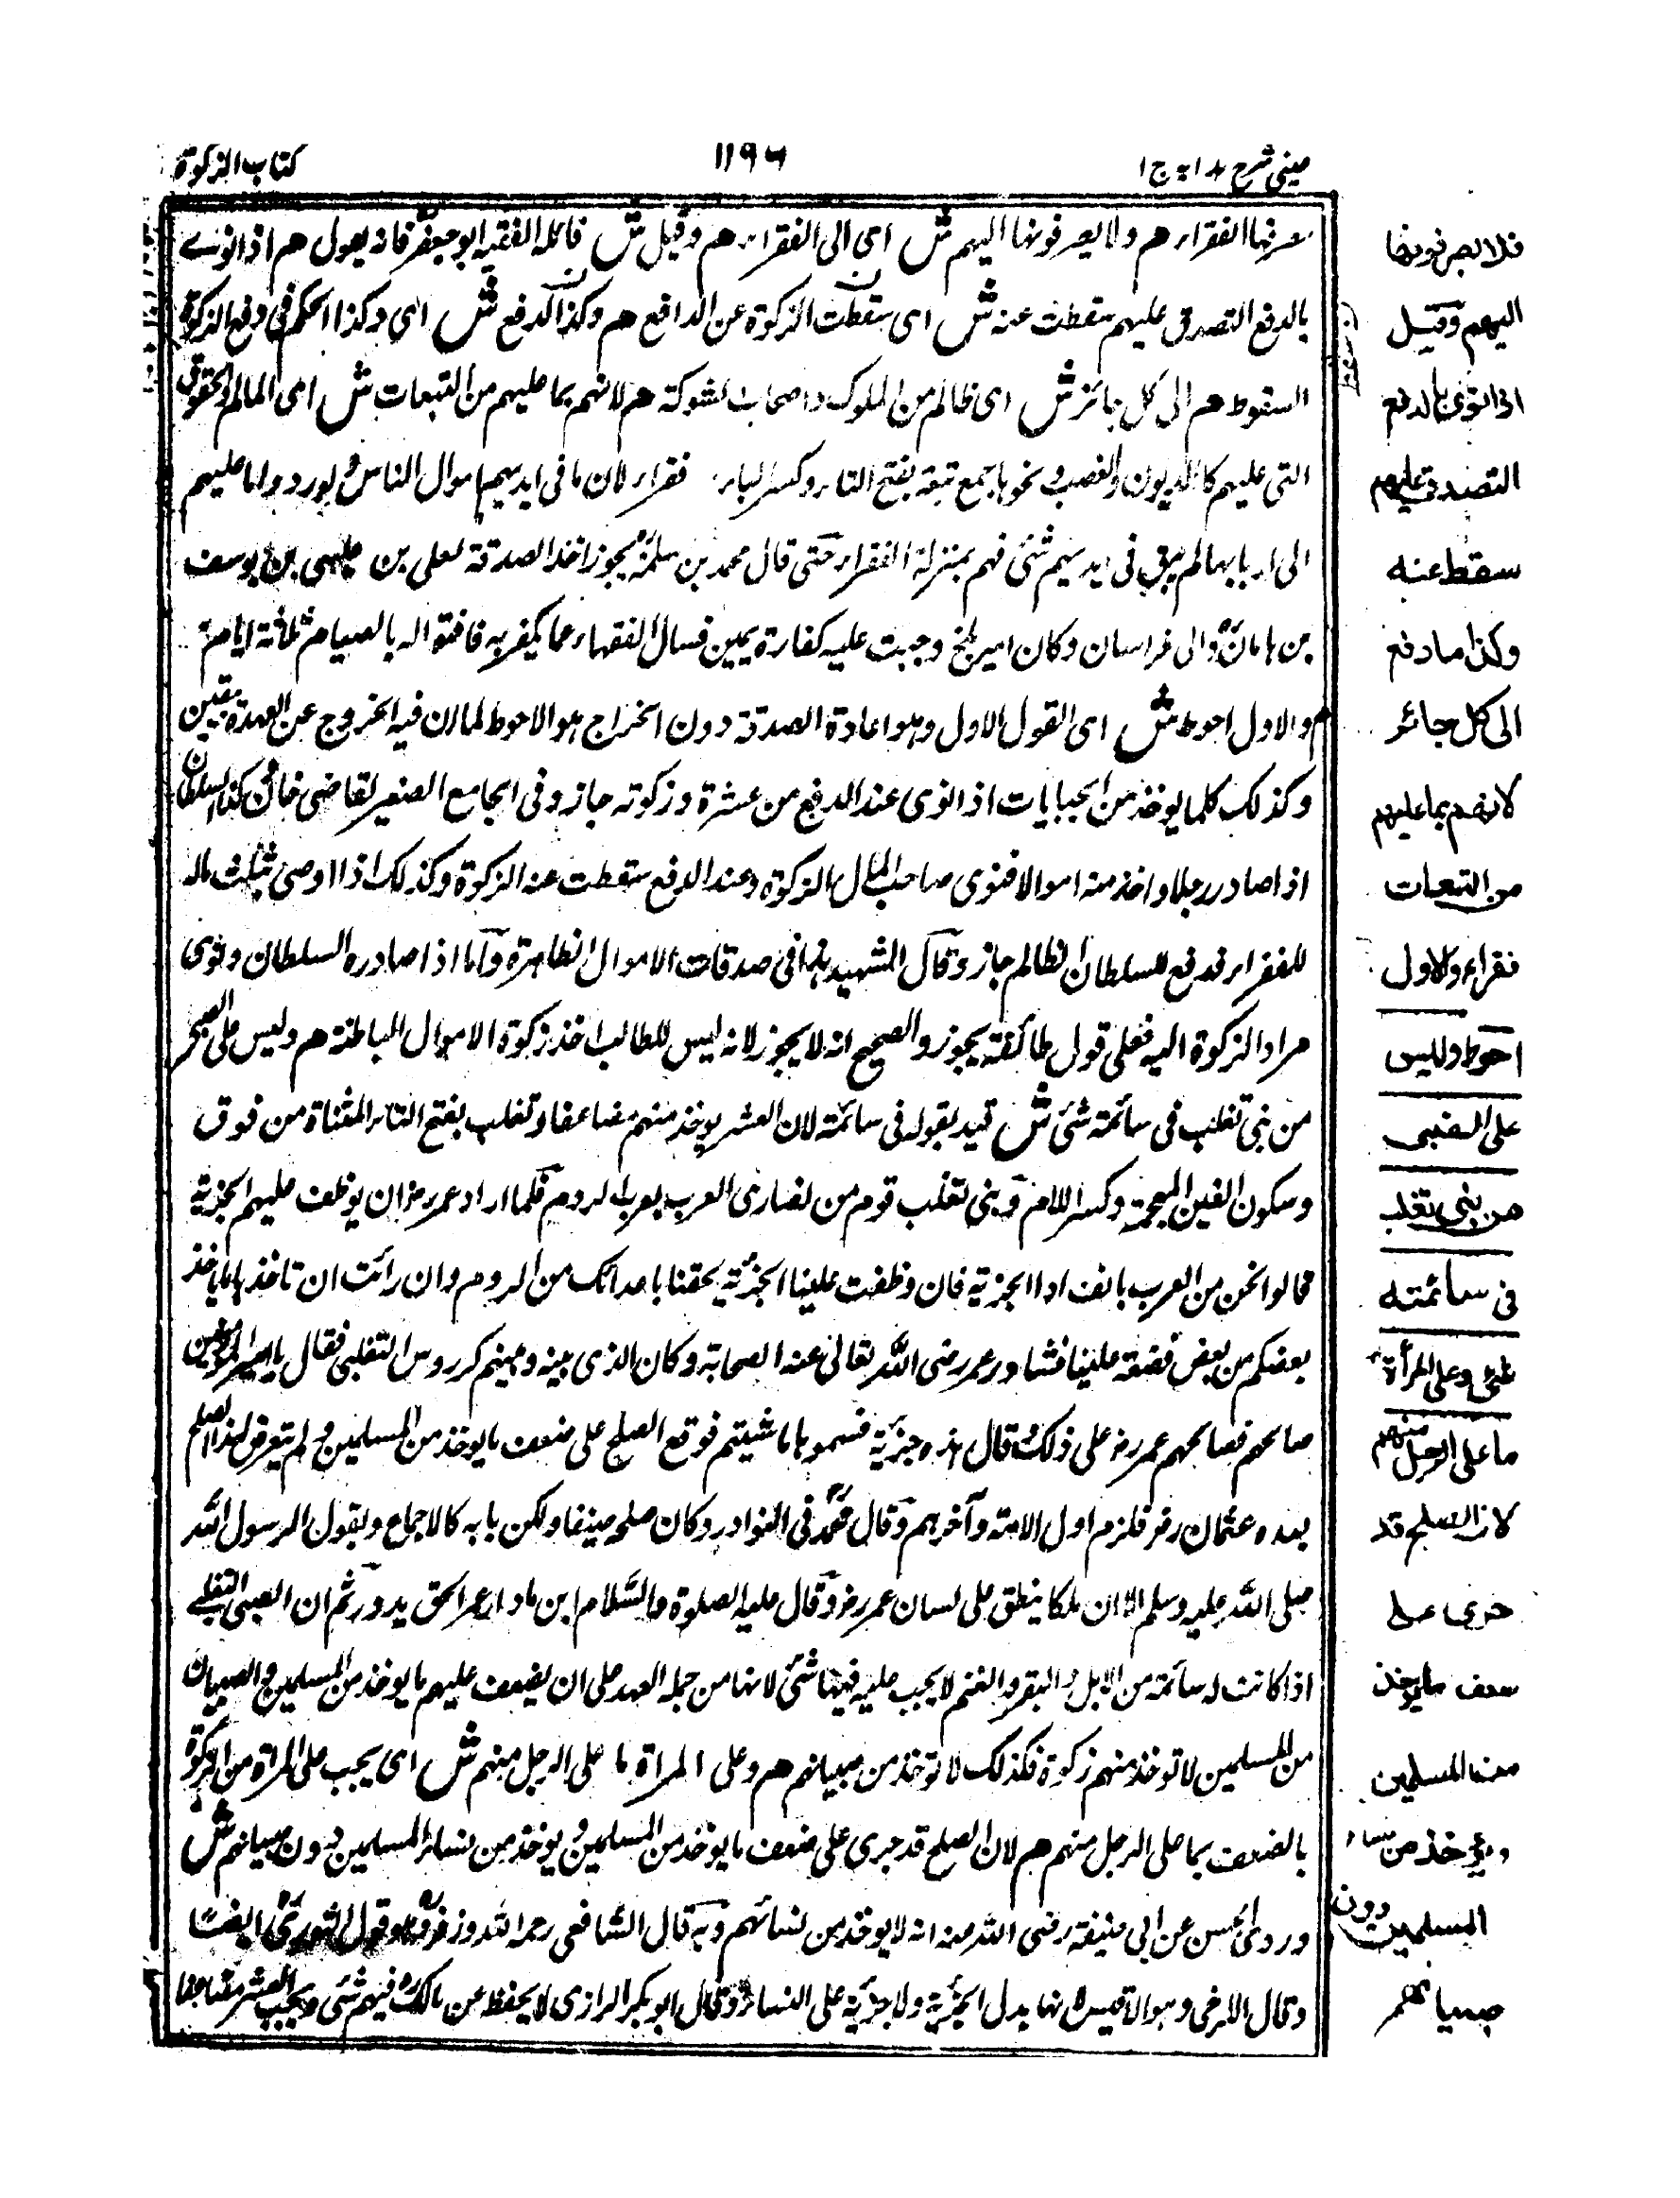 عینی شرح هدایہ ج ا
١١٩٦
کتاب الزکوة
مصرفها الفقراء هم ولا یصرفونها الیهم ش ای الی الفقراء هم وقیل ش قائله الفقیه ابو جعفرؒ فانه یقول هم اذا نوے
بالدفع التصدق علیهم سقطت عنه ش ای سقطت الزکوة عن الدافع هم وکذا الدفع ش ای وکذا الحکم فی دفع الزکوة
السقوط هم الی کل جائر ش ای ظالم من الملوک واصحاب الشوکة هم لانهم بما علیهم من التبعات ش ای المالم والحقوق
التی علیهم کالدیون والغصب ونحوها جمع تبعة بفتح التاء وکسر الباء فقراء لان ما فی ایدیهم اموال الناس ولو ردوا ما علیهم
الی اربابها لم یبق فی ایدیهم شئی فهم بمنزلة الفقراء حتی قال محمد بن سلمةؒ یجوز اخذ الصدقة لعلی بن عیسی بن یوسف
بن هامانؒ والی خراسان وکان امیر بلخ وجبت علیه کفارة یمین فسال الفقهاء عما یکفر به فافتوا له بالصیام ثلثة ایام
هم والاول احوط ش ای القول الاول وهو اعادة الصدقة دون الخراج هو الاحوط لما ان فیه الخروج عن العهدة بیقین
وکذلک کلما یوخذ من الجبایات اذا نوی عند الدفع من عشرة وزکوته جاز وفی الجامع الصغیر لقاضی خانؒ وکذا السلطان
اذا صادر رجلا واخذ منه اموالا فنوی صاحب المال الزکوة عند الدفع سقطت عنه الزکوة وکذلک اذا اوصی بثلث ماله
للفقراء فدفع للسلطان الظالم جاز وقال الشهید هذا فی صدقات الاموال الظاهرة واما اذا صادره السلطان ونوی
هو اداء الزکوة الیه فعلی قول طائفة یجوز والصحیح انه لا یجوز لانه لیس للطالب اخذ زکوة الاموال الباطنة هم ولیس علی الصبی
من بنی تغلب فی سائمته شئی ش قید بقوله فی سائمته لان العشر یوخذ منهم مضاعفا وتغلب بفتح التاء المثناة من فوق
وسکون الغین المعجمة وکسر اللام وبنی تغلب قوم من نصاری العرب بقرب الروم فلما اراد عمر رض ان یوظف علیهم الجزیة
قالوا نحن من العرب نانف اداء الجزیة فان وظفت علینا الجزیة لحقنا باعدائک من الروم وان رأئت ان تاخذ منا ما یاخذ
بعضکم من بعض فضعفه علینا فشاور عمر رضی الله تعالی عنه الصحابة وکان الذی بینه وبینهم کردوس التغلبی فقال یا امیر المؤمنین
صالحهم فصالحهم عمر رض علی ذلک وقال هذه جزیة فسموها ما شئتم فوقع الصلح علی ضعف ما یوخذ من المسلمین ولم یتعرض لهذا الصلح
بعده عثمان رض فلزم اول الامة وآخرهم وقال محمدؒ فی النوادر وکان صلحه ضعیفا ولکن تایه کالاجماع وبقول الرسول الله
صلی الله علیه وسلم الا ان ملکا ینطق علی لسان عمر رض وقال علیه الصلوة والسلام این ما دار عمر الحق یدور ثم ان الصبی التغلبے
اذا کانت له سائمة من الابل والبقر والغنم لا یجب علیه فیها شئی لانها من جملة العهد علی ان یضعف علیهم ما یوخذ من المسلمین والصبیان
من المسلمین لا توخذ منهم زکوة فکذلک لا توخذ من صبیانهم هم وعلی المراة ما علی الرجل منهم ش ای یجب علی المراة من الزکوة
بالضعف بما علی الرجل منهم هم لان الصلح قد جری علی ضعف ما یوخذ من المسلمین ویوخذ من نساء المسلمین دون صبیانهم ش
وروی الحسن عن ابی حنیفة رضی الله عنه انه لا یوخذ من نسائهم وبه قال الشافعی رحمه الله وزفرؒ وهو قول الثوریؒ ایضا
وقال الکرخی وهو الاقیس لانها بدل الجزیة ولا جزیة علی النساء وقال ابو بکر الرازی لا یحفظ عن مالکؒ فیهم شئی ویجب العشر مضاعفا
فلا یصرفونها
الیهم وقیل
اذا نوی بالدفع
التصدق علیهم
سقط عنه
وکذا ما دفع
الی کل جائر
لانهم بما علیهم
من التبعات
فقراء والاول
احوط ولیس
علی الصبی
من بنی تغلب
فی سائمته
شئی وعلی المرأة
ما علی الرجل منهم
لان الصلح قد
جری علی
ضعف ما یوخذ
من المسلمین
ویوخذ من نساء
المسلمین دون
صبیانهم